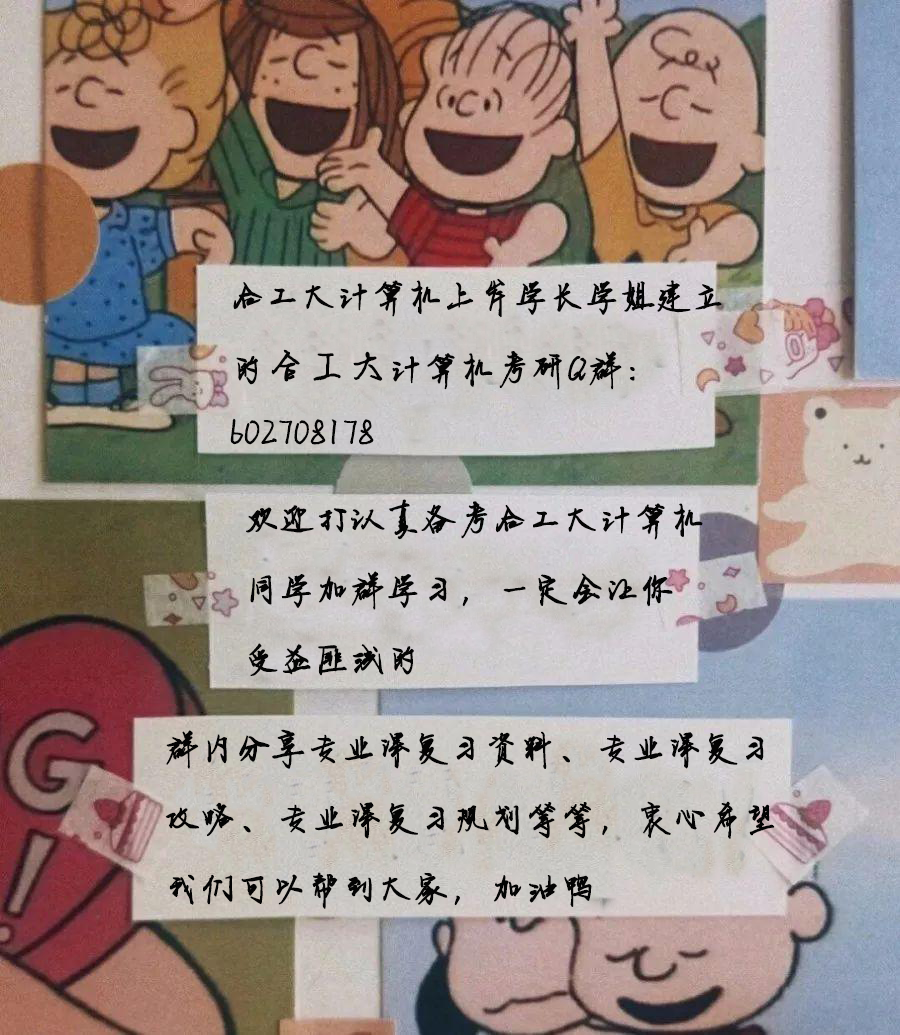 合工大计算机上岸学长学姐建立
的合工大计算机考研Q群：
602708178
欢迎打认真备考合工大计算机
同学加群学习，一定会让你
受益匪浅的
群内分享专业课复习资料、专业课复习
攻略、专业课复习规划等等，衷心希望
我们可以帮到大家，加油鸭
G
!